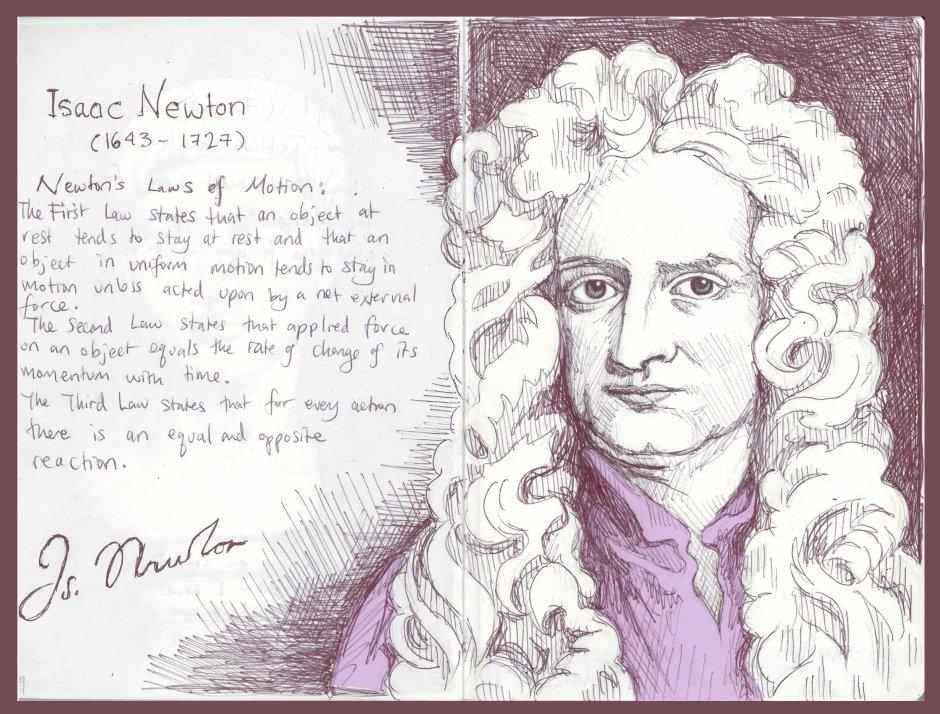 Isaac Newton
(1643-1727)
Newton's Laws of Motion:
The First Law states that an object at
rest tends to stay at rest and that an
object in uniform motion tends to stay in
motion unless acted upon by a net external
force.
The Second Law states that applied force
on an object equals the rate of change of its
momentum with time.
The Third Law states that for every action
there is an equal and opposite
reaction.
Is. Newton
9